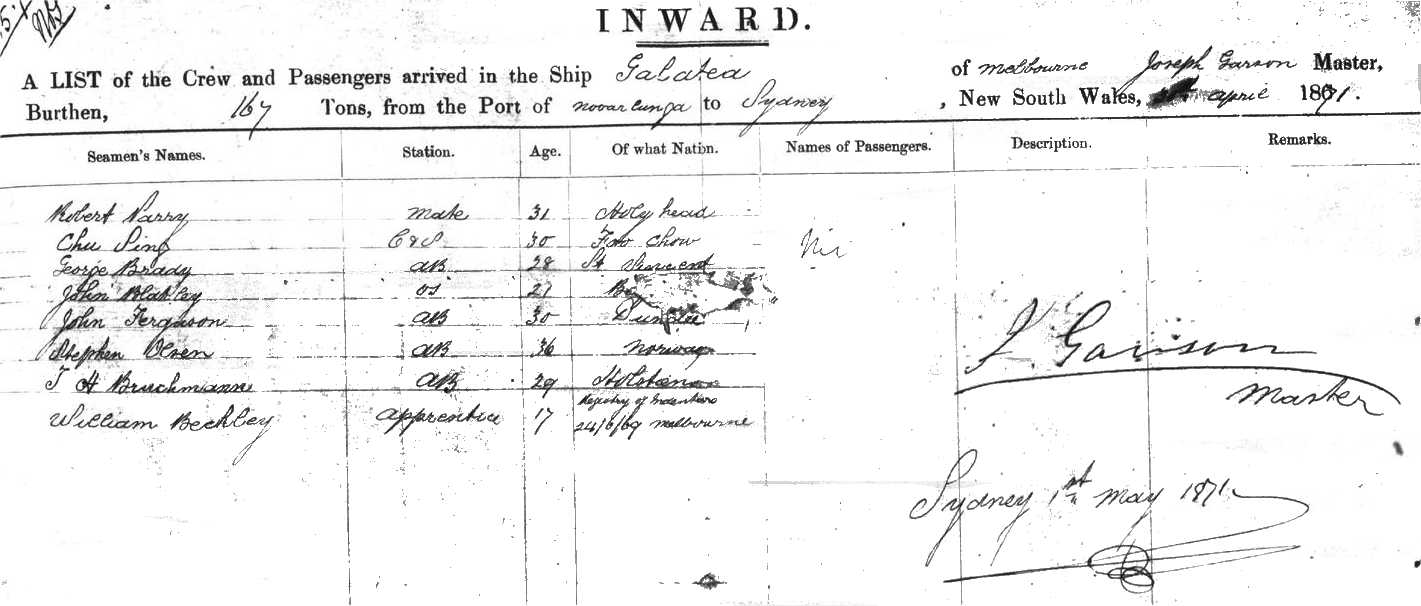 INWARD.
A LIST of the Crew and Passengers arrived in the Ship Galatea of Melbourne Joseph Garson Master,
Burthen, 167 Tons, from the Port of Novarlunga to Sydney, New South Wales, April 1871.
Seamen's Names. Station. Age. Of what Nation. Names of Passengers. Description. Remarks.
Robert Parry Mate 31 Holy head
Chu Sing C&S 30 Foo Chow Nil
George Brady AB 28 St
John Blakley OS 21
John Ferguson AB 30 Dundee
Stephen Olsen AB 36 Norway
T H Bruchmann AB 29 Holstein
William Beckley apprentice 17 Registry of Indenture
24/6/69 Melbourne
J. Garson
Master
Sydney 1st May 1871